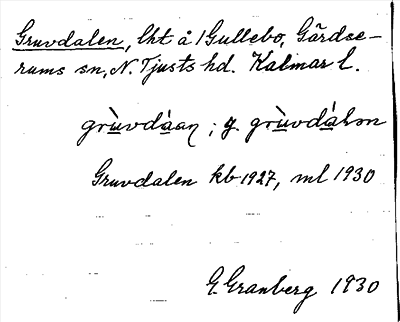 Gruvdalen, lht å 1 Gullebo, Gärdse-
rums sn, N. Tjusts hd. Kalmar l.
grùvdàan; g. grùvdálsn
Gruvdalen kb 1927, ml 1930
G. Granberg 1930